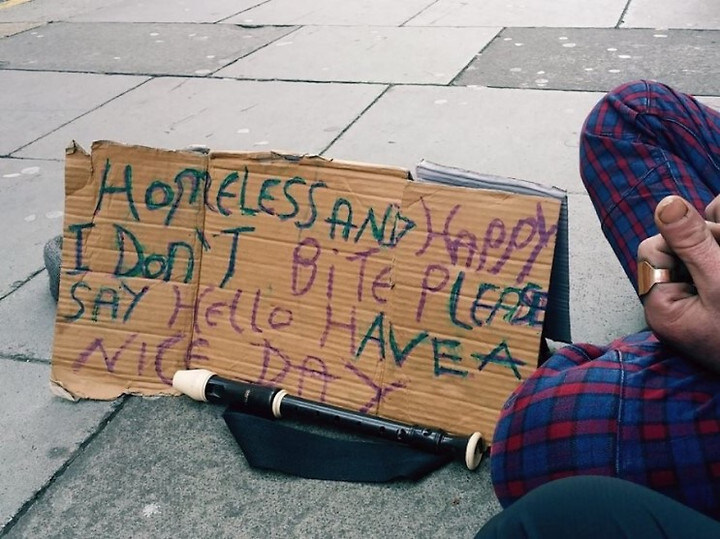 HOMELESS AND HAPPY
I DON'T BITE PLEASE
SAY Hello HAVE A
NICE DAY